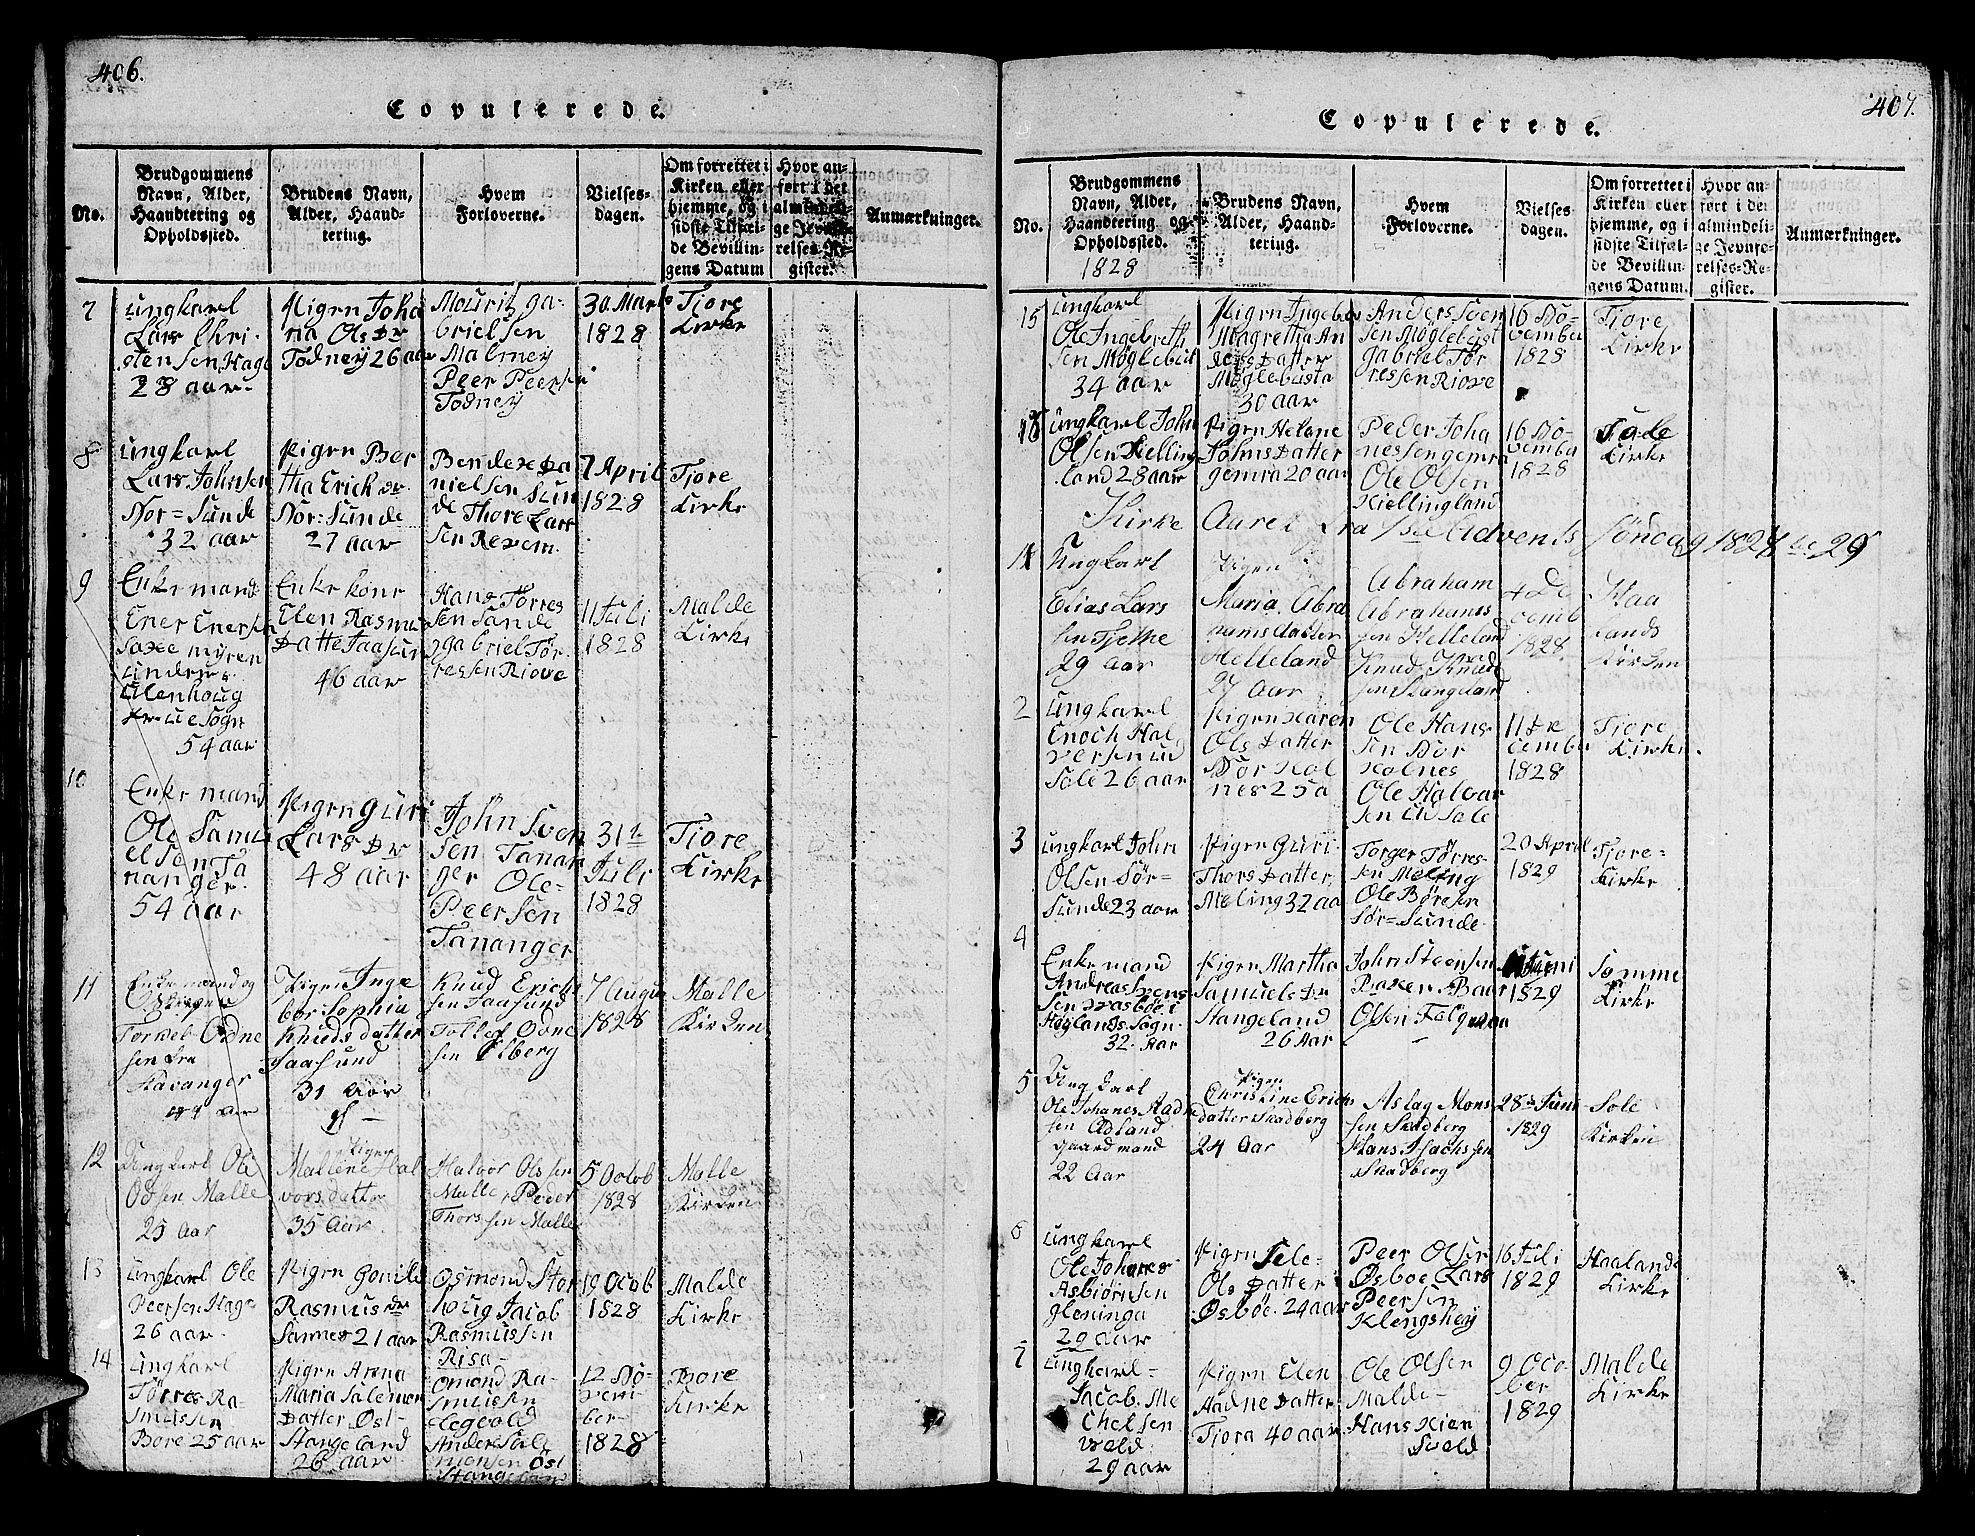 406.
Copulerede.
No.
Brudgommens
Navn, Alder,
Haandtering og
Opholdssted.
Brudens Navn,
Alder, Haand-
tering.
Hvem
Forloverne.
Vielses-
dagen.
Om forrettet i
Kirken eller
hjemme, og i
sidste Tilfæl-
de Bevillin-
gens Datum
Hvor an-
ført i det
almindeli-
ge Jevnfø-
relses-Re-
gister.
Anmærkninger.
7
ungkarl
Lars Chri-
stensen Hage
28 aar-
Pigen Joha
na Ols Dr
Todney 26 aar
Mouritz ga-
brielsen
Malmey
Peer Peersen
Todney
30 Marts
1828
Tjore
Kirke
8
ungkarl
Lars Johnsen
Nor=Sunde
32 aar
Pigen Ber
tha Erick Dr
Nor=Sunde
27 aar
Bendex Da
nielsen Sun
de Thore Lars
sen Revem.
7 April
1828
Tjore
Kirke
9
Enkemand
Ener Enersen
54 aar
Enkekone
Elen Rasmus
Datte Jaasund
46 aar
Hans Torres
sen Sande
gabriel Tør-
ressen Riove
11 Juli
1828
Malde
Kirke
10
Enkemand
Ole Samu
elsen Ta
nanger.
54 aar
Pigen Guri
Lars Dr
48 aar
John Sven
sen Tanan
ger Ole
Peersen
Tananger
31te
Juli
1828
Tjore
Kirke
11
Enkemand og
Torkel Odne
sen fra
Stavanger
Pigen Inge
bor Sophia
Knudsdatter
Jaasund
31 Aar
Knud Erich
sen Jaasund
Tollef Odne
sen
7 Augu
1828
Malle
Kirken
12
Ungkarl Ole
Odsen Malle
25 Aar
Pigen
Mallene Hal
vorsdatter
35 Aar
Halvor Olssen
Malle, Peder
Thorssen Malle
5 Octob
1828
Malle
Kirken
13
ungkarl Ole
Peersen Hage
26 aar.
Pigen Gonild
Rasmus Dr
Sannes 21 aar
Osmond Stor
houg Jacob
Rasmussen
Risa
19 Ocob
1828
Malde
Kirke
14
ungkarl
Tørres Ra-
smussen
Bore 25 aar
Pigen Arena
Maria Salemon
Datter Øst-
Stangeland
26 aar
Omond Ra-
smussen
Ander Sal
monsen Øst
Stangeland
12 No-
vem-
ber-
1828
Tjore
Kirke
407.
Copulerede.
No.
Brudgommens
Navn, Alder,
Haandtering og
Opholdssted.
1828
Brudens Navn,
Alder, Haand-
tering.
Hvem
Forloverne.
Vielses-
dagen.
Om forrettet i
Kirken eller
hjemme, og i
sidste Tilfæl-
de Bevillin-
gens Datum.
Hvor an-
ført i det
almindeli-
ge Jevnfø-
relses-Re-
gister.
Anmærkninger.
15
ungkarl
Ole Ingebreth
sen Møglebust
34 aar
Pigen Ingebor
Magretha An
ders Datter
Møglebusta
30 aar
Anders Sven
sen Møglebust
gabriel Tør
ressen Riove
16 No-
vember
1828
Tjore
Kirke
16
ungkarl John
Olsen Kielling
land 28 aar
Pigen Helene
Johns Datter
gemra 20 aar
Peder Joha
nessen gemra
Ole Olsen
Kiellingland
16 No-
vember
1828
Sole
Kirke
Kirke Aaret fra 1ste Advents Søndag 1828 til 29
1
Ungkarl
Elias Lars
sen Tjelke
29 Aar
Pigen
Maria Abra
hamsdatter
Helleland
27 Aar
Abraham
Abrahams
sen Helleland
Knud Knud
sen Stangeland
4 De
cemb
1828.
Haa
lands
Kirken
2
ungkarl
Enoch Hal
versen ud
Sole 26 aar
Pigen Karen
Ols Datter
Nor Kol
nes 25 a
Ole Hans
sen Nor
Kolnes
Ole Halvor
sen ud Sole
11 De
cember
1828
Tjore
Kirke.
3
ungkarl John
Olsen Sør-
Sunde 23 aar
Pigen Guri
Thors Datter,
Meling 32 aa
Torger Tørres-
sen Meling
Ole Børesen
Sør=Sunde
20 April
1829
Tjore=
Kirke
4
Enkemand
Andreas Svens
Høylands Sogn.
32. Aar
Pigen Martha
Samuels Dr
Stangeland
26 Aar
John Steensen
Olsen
Juni
1829
Somme
Kirke
5
Ung Karl
Ole Johanes Aadne
sen Adland
gaardmand
22 Aar
Pigen
Christine Erichs
datter Skadberg
24 Aar
Aslag Mons
sen Skadberg
Hans Isachssen
Skadberg
28de Juni
1829
Sole
Kirken
6
ungkarl
Ole Johanes
Asbiørnsen
gloninga
29 aar
Pigen Sele-
Ols Datter i
Øsboe. 24 aar
Peer Olsen
Øsboe Lars
Peersen
Klengshey
16 Juli
1829
Haaland
Kirke
7
ungkarl-
Jacob. Me
Chelsen
Weld.
29 aar
Pigen Elen
Aadne Datter
Tjora 40 aar
Ole Olsen
Malde-
Hans Kien
Sveld
9 Oco-
ber
1829
Malde
Kirke